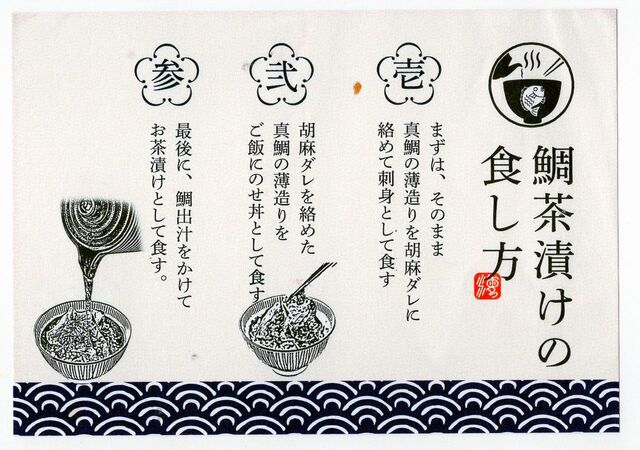 鯛茶漬けの
食し方
壱
まずは、そのまま
真鯛の薄造りを胡麻ダレに
絡めて刺身として食す
弐
胡麻ダレを絡めた
真鯛の薄造りを
ご飯にのせ丼として食す
参
最後に、鯛出汁をかけて
お茶漬けとして食す。